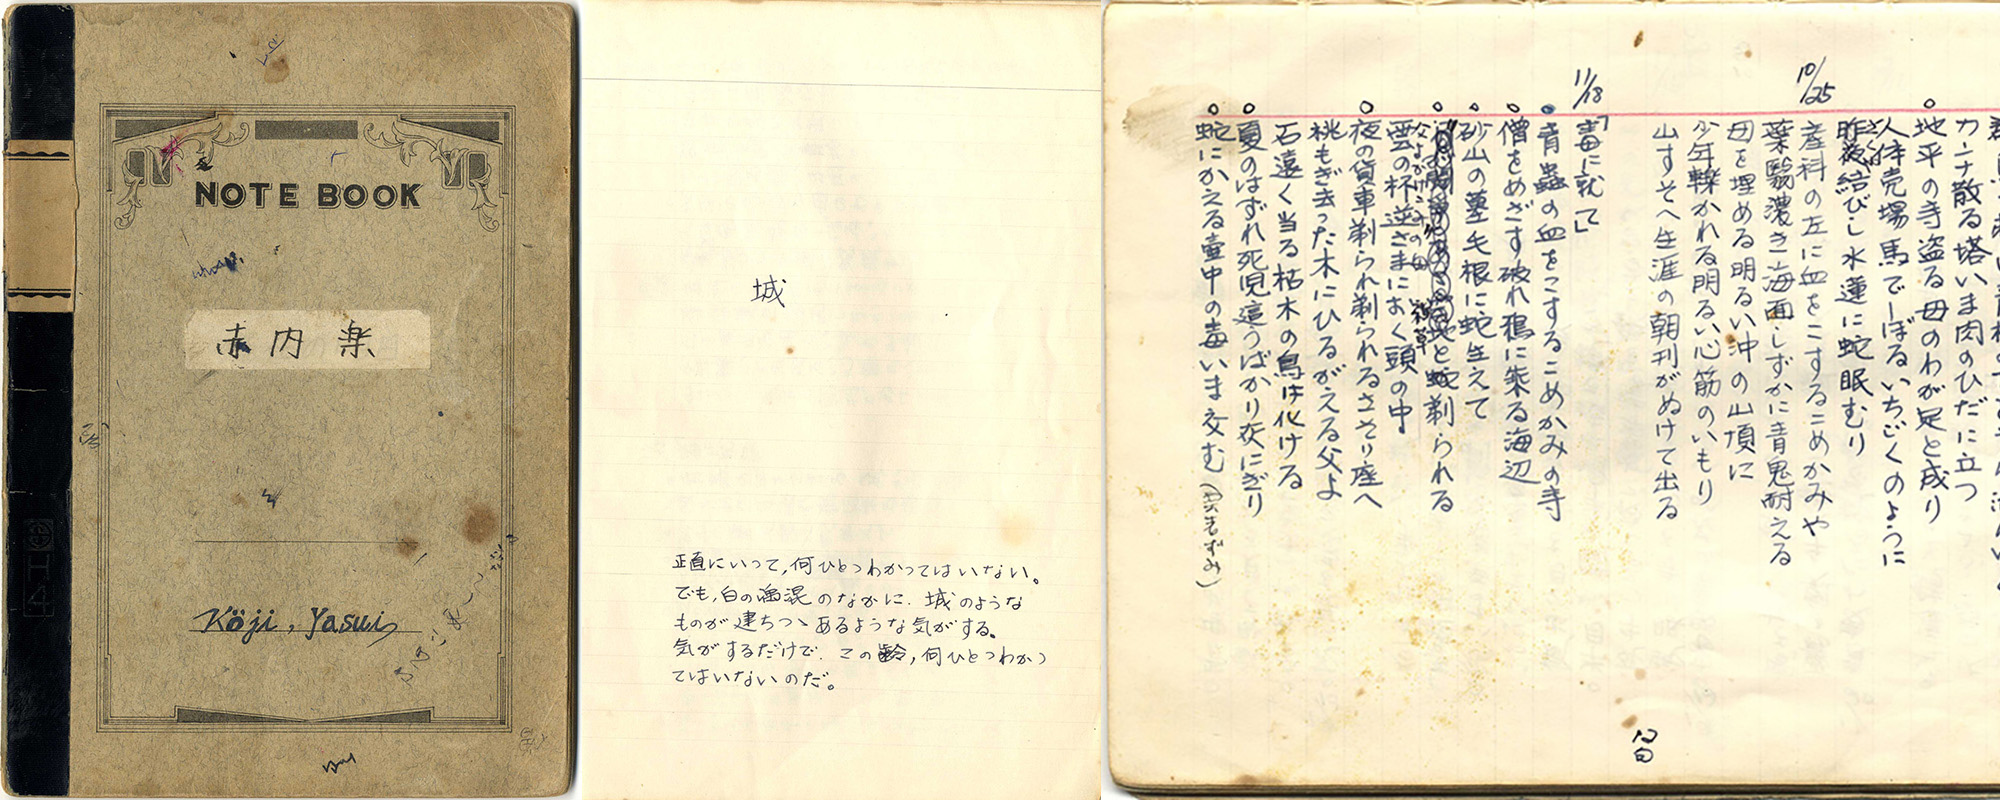 NOTE BOOK
赤内楽
Köji, Yasui
城
正直にいって,何ひとつわかってはいない。
でも,白の混のなかに、城のような
ものが建ちつゝあるような気がする。
気がするだけで、この齢,何ひとつわかっ
てはいないのだ。
カンナ散る塔いま肉のひだに立つ
地平の寺盗る母のわが足と成り
人待売場馬でのぼるいちぢくのように
昨夜結びし水蓮に蛇眠むり
10/25
産科の左に血をこするこめかみや
薬翳濃き海面しずかに青鬼耐える
母を埋める明るい沖の山頂に
少年轢かれる明るい心筋のいもり
山すそへ生涯の朝刊がぬけて出る
11/18
「毒に就て」
青蟲の血をこするこめかみの寺
僧をめざす破れ鴉に楽る海辺
砂山の墓毛根に蛇生えて
蛇と剃られる
雲の杯逆さまにおく頭の中
夜の貨車剃られ剃られるさそり座へ
桃もぎ去った木にひるがえる父よ
石遠く当る枯木の鳥は化ける
夏のはずれ死児這うばかり灰にぎり
蛇にかえる壷中の毒いま交む